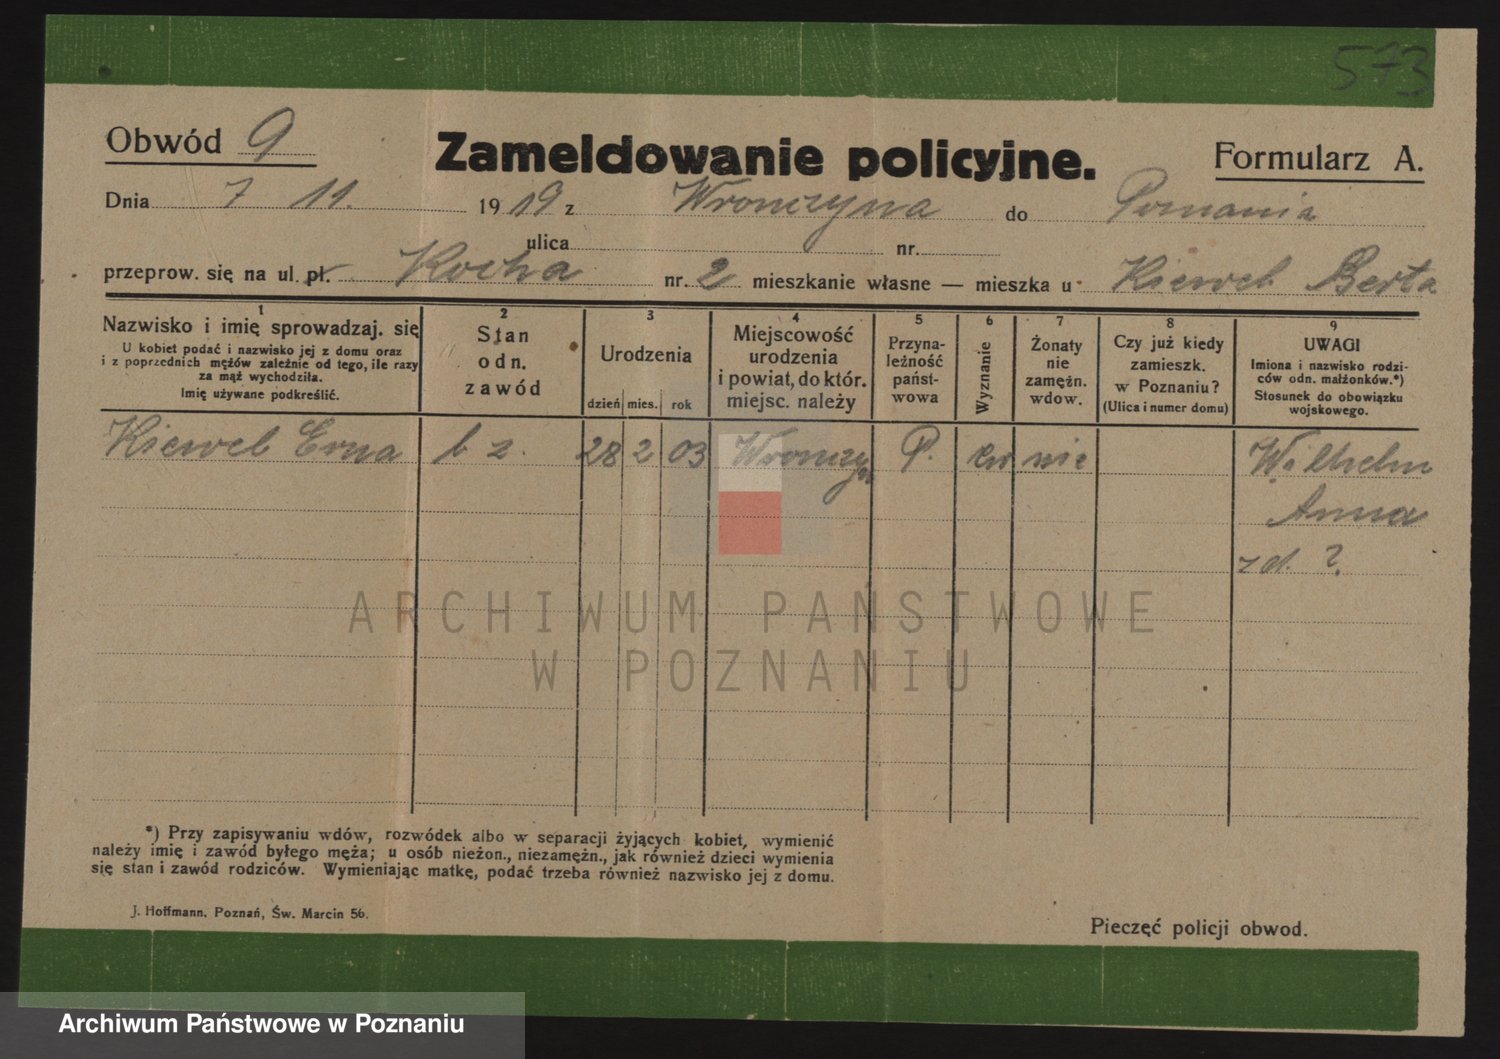 573
Obwód 9
Zameldowanie policyjne.
Formularz A.
Dnia 7 11. 1919 z Wronczyna do Poznania
ulica nr.
przeprow. się na ul. pł. Kocha nr. 2 mieszkanie własne — mieszka u Kiewel Berta
1 2 3 4 5 6 7 8 9
Nazwisko i imię sprowadzaj. się
U kobiet podać i nazwisko jej z domu oraz
i z poprzednich mężów zależnie od tego, ile razy
za mąż wychodziła.
Imię używane podkreślić.
Stan
odn.
zawód
Urodzenia
dzień mies. rok
Miejscowość
urodzenia
i powiat, do któr.
miejsc. należy
Przyna-
leżność
państ-
wowa
Wyznanie
Żonaty
nie
zamężn.
wdow.
Czy już kiedy
zamieszk.
w Poznaniu?
(Ulica i numer domu)
UWAGI
Imiona i nazwisko rodzi-
ców odn. małżonków.*)
Stosunek do obowiązku
wojskowego.
Kiewel Erna b z. 28 2 03 Wronczyn P. ew nie Wilhelm
Anna
z d. ?
ARCHIWUM PAŃSTWOWE
W POZNANIU
*) Przy zapisywaniu wdów, rozwódek albo w separacji żyjących kobiet, wymienić
należy imię i zawód byłego męża; u osób nieżon., niezamężn., jak również dzieci wymienia
się stan i zawód rodziców. Wymieniając matkę, podać trzeba również nazwisko jej z domu.
J. Hoffmann, Poznań, Św. Marcin 56.
Pieczęć policji obwod.
Archiwum Państwowe w Poznaniu